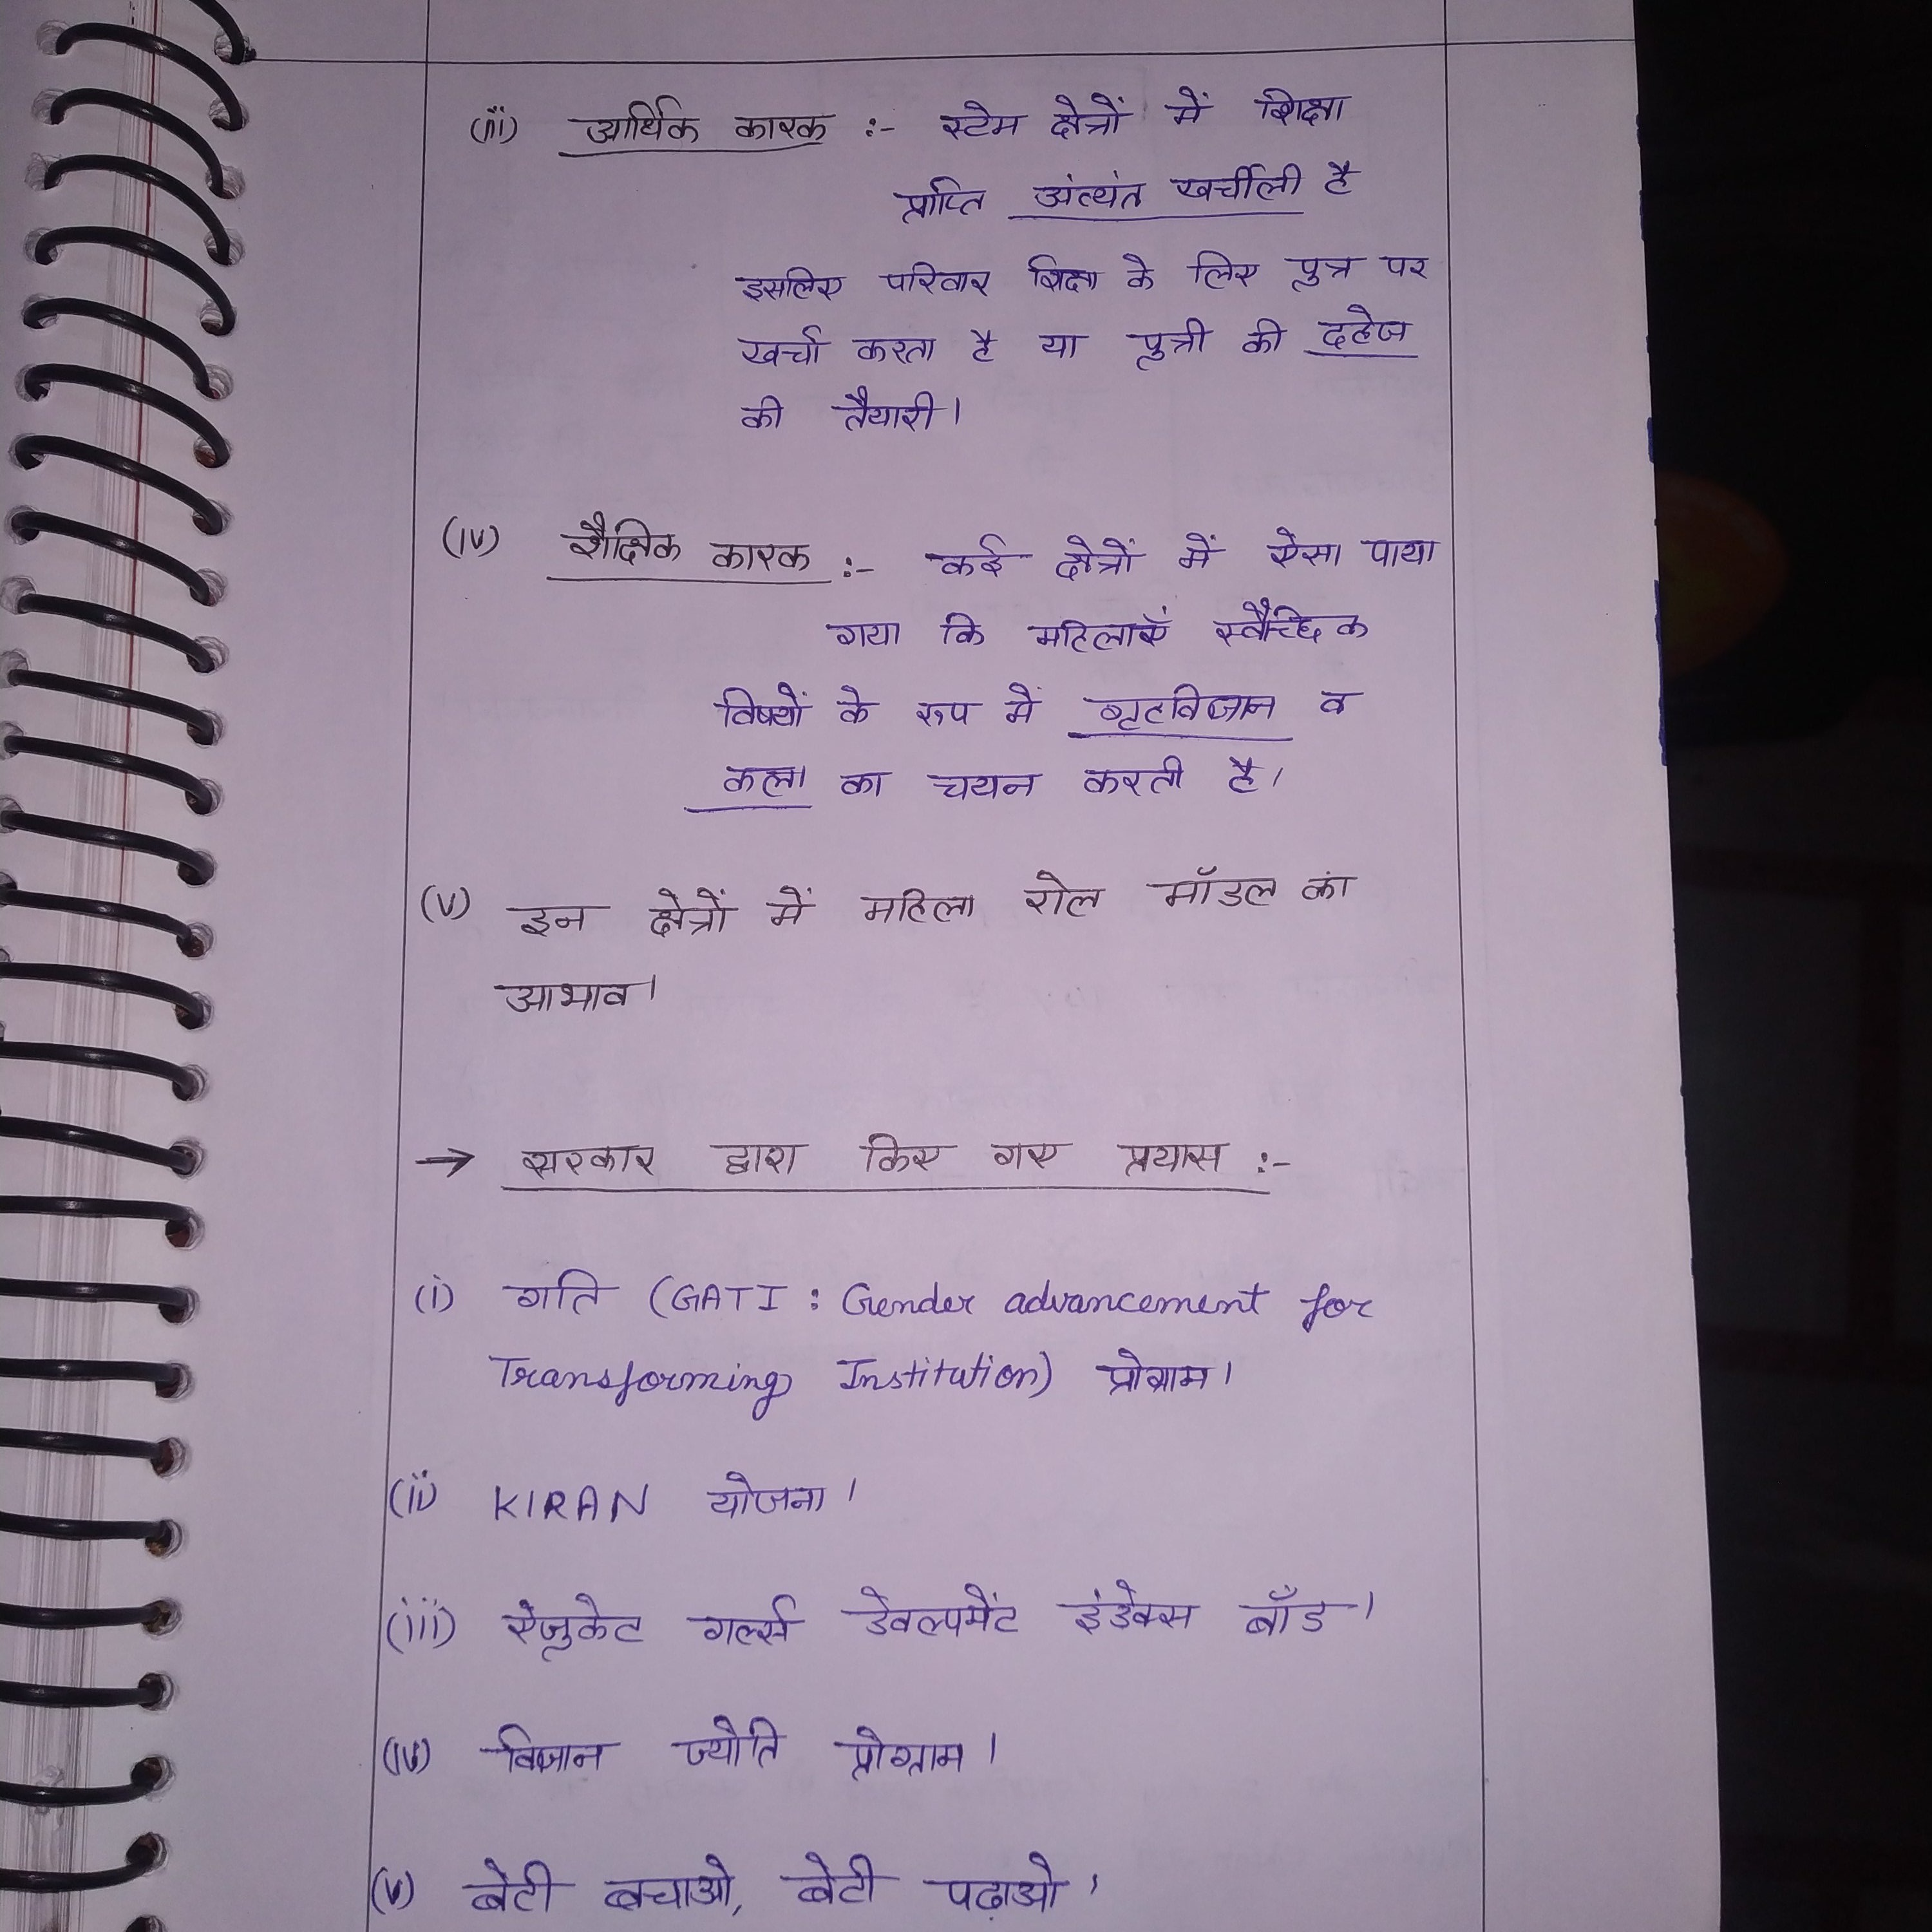 (iii) आर्थिक कारक :- स्टेम क्षेत्रों में शिक्षा
प्राप्ति अंत्यंत खर्चीली है
इसलिए परिवार शिक्षा के लिए पुत्र पर
खर्चा करता है या पुत्री की दहेज
की तैयारी।
(iv) शैक्षिक कारक :- कई क्षेत्रों में ऐसा पाया
गया कि महिलाएँ स्वैच्छिक
विषयों के रूप में गृहविज्ञान व
कला का चयन करती है।
(v) इन क्षेत्रों में महिला रोल मॉडल का
आभाव।
→ सरकार द्वारा किए गए प्रयास :-
(i) गति (GATI : Gender advancement for
Transforming Institution) प्रोग्राम।
(ii) KIRAN योजना।
(iii) ऐजुकेट गर्ल्स डेवलपमेंट इंडेक्स बॉड।
(iv) विज्ञान ज्योति प्रोग्राम।
(v) बेटी बचाओ, बेटी पढ़ाओ।